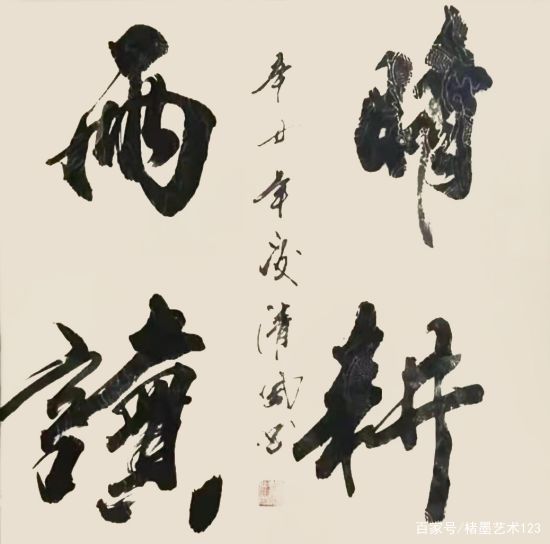 晴耕
雨讀
辛丑年清書
百家号/楮墨艺术123